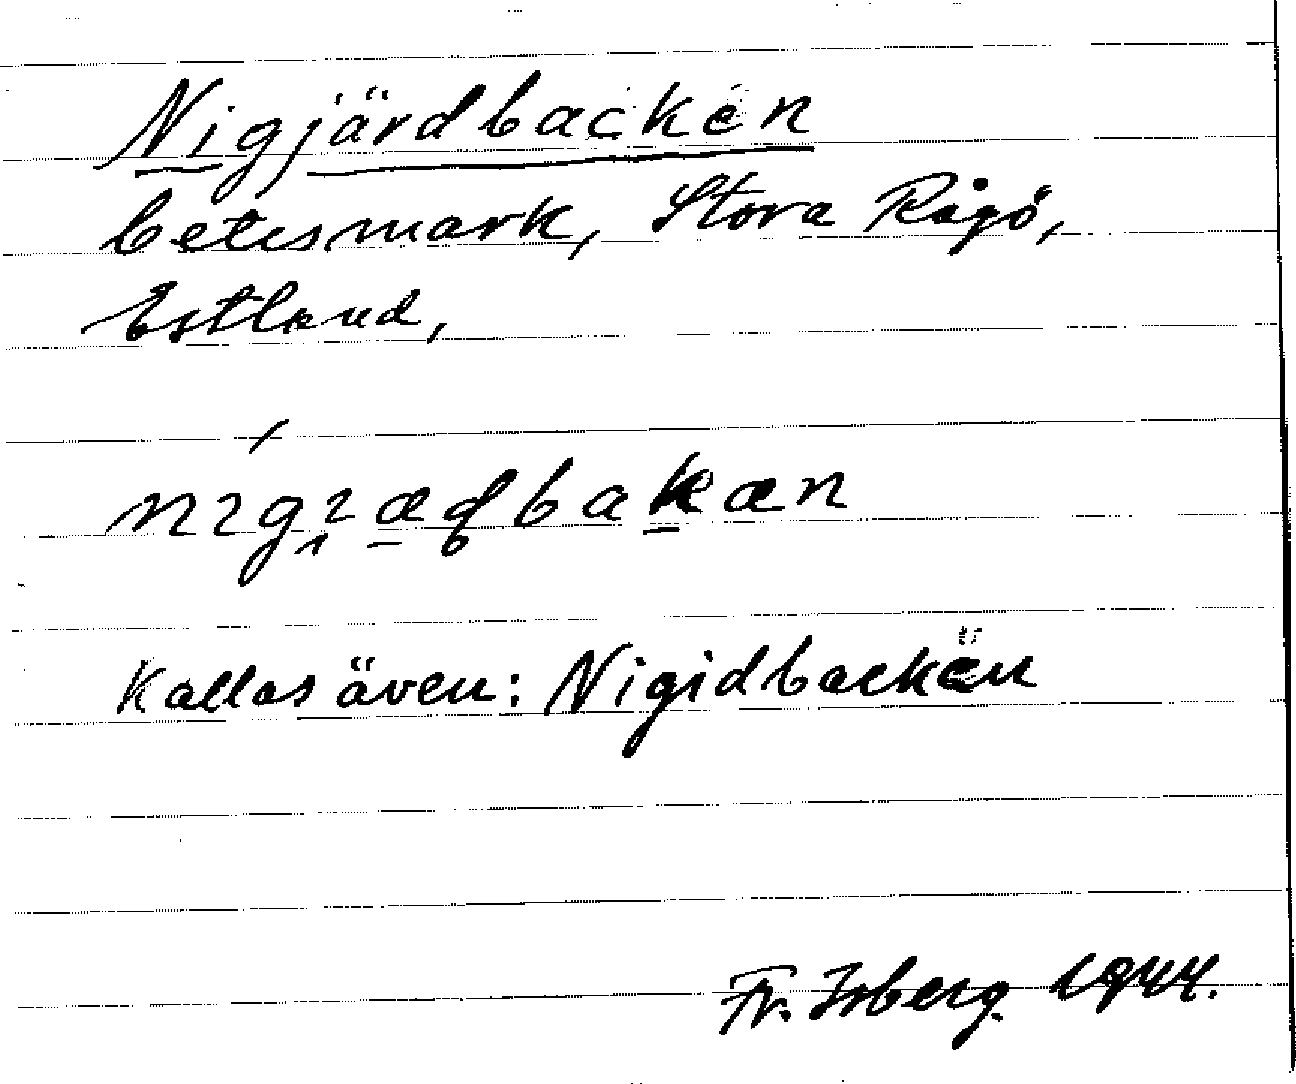 Nigjärdbacken
betesmark, Stora Rågö,
Estland,
Kallas även: Nigidbacken
Fr. Isberg. 1944.